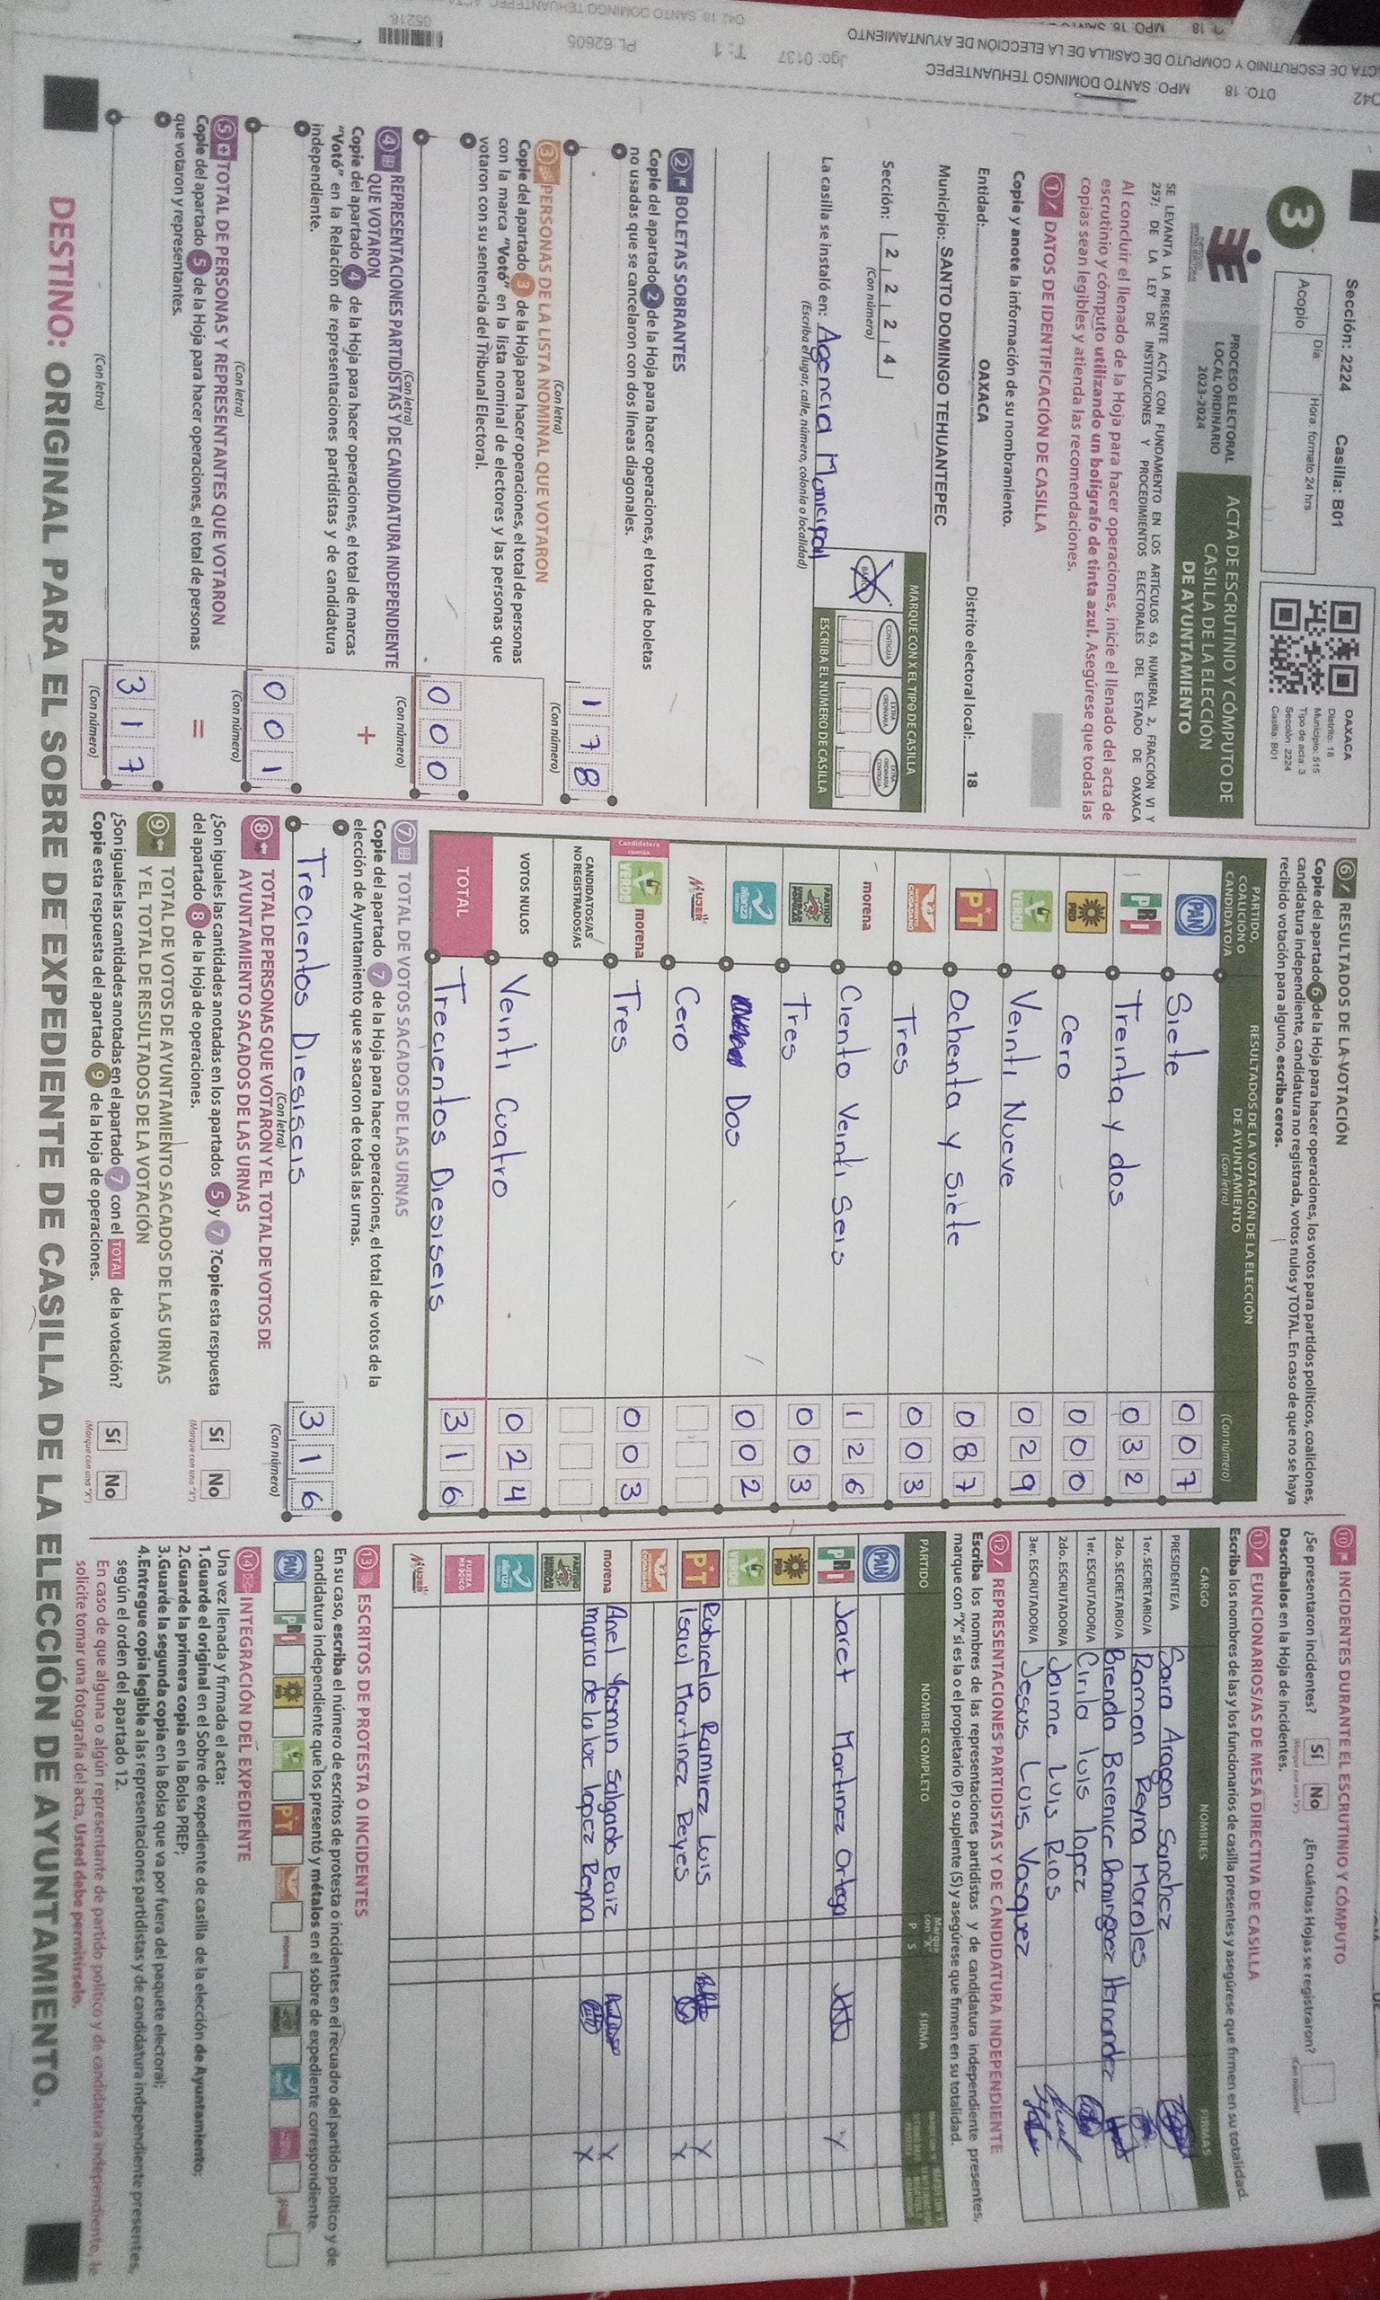 ACTA DE ESCRUTINIO Y COMPUTO DE CASILLA DE LA ELECCION DE AYUNTAMIENTO
DTO: 18 MPO: SANTO DOMINGO TEHUANTEPEC
Jgo: 0137 T: 1 PL 62605
05216
Sección: 2224 Casilla: B01
3
Acopio
Día
Hora: formato 24 hrs
OAXACA
Distrito: 18
Municipio: 515
Tipo de acta: 3
Sección: 2224
Casilla: B01
PROCESO ELECTORAL
LOCAL ORDINARIO
2023-2024
ACTA DE ESCRUTINIO Y CÓMPUTO DE
CASILLA DE LA ELECCIÓN
DE AYUNTAMIENTO
SE LEVANTA LA PRESENTE ACTA CON FUNDAMENTO EN LOS ARTÍCULOS 63, NUMERAL 2, FRACCIÓN VI Y
257; DE LA LEY DE INSTITUCIONES Y PROCEDIMIENTOS ELECTORALES DEL ESTADO DE OAXACA
Al concluir el llenado de la Hoja para hacer operaciones, inicie el llenado del acta de
escrutinio y cómputo utilizando un bolígrafo de tinta azul. Asegúrese que todas las
copias sean legibles y atienda las recomendaciones.
1 DATOS DE IDENTIFICACIÓN DE CASILLA
Copie y anote la información de su nombramiento.
Entidad: OAXACA Distrito electoral local: 18
Municipio: SANTO DOMINGO TEHUANTEPEC
Sección: 2 2 2 4
(Con número)
MARQUE CON X EL TIPO DE CASILLA
BÁSICA
CONTIGUA
EXTRA ORDINARIA
EXTRA ORDINARIA CONTIGUA
ESCRIBA EL NÚMERO DE CASILLA
La casilla se instaló en: Agencia Municipal
(Escriba el lugar, calle, número, colonia o localidad)
2 BOLETAS SOBRANTES
Copie del apartado 2 de la Hoja para hacer operaciones, el total de boletas
no usadas que se cancelaron con dos líneas diagonales.
1 7 8
(Con letra) (Con número)
3 PERSONAS DE LA LISTA NOMINAL QUE VOTARON
Copie del apartado 3 de la Hoja para hacer operaciones, el total de personas
con la marca "Votó" en la lista nominal de electores y las personas que
votaron con su sentencia del Tribunal Electoral.
0 0 0
(Con letra) (Con número)
4 REPRESENTACIONES PARTIDISTAS Y DE CANDIDATURA INDEPENDIENTE
QUE VOTARON
Copie del apartado 4 de la Hoja para hacer operaciones, el total de marcas
"Votó" en la Relación de representaciones partidistas y de candidatura
independiente.
+
0 0 1
(Con letra) (Con número)
5 TOTAL DE PERSONAS Y REPRESENTANTES QUE VOTARON
Copie del apartado 5 de la Hoja para hacer operaciones, el total de personas
que votaron y representantes.
=
3 1 7
(Con letra) (Con número)
6 RESULTADOS DE LA VOTACIÓN
Copie del apartado 6 de la Hoja para hacer operaciones, los votos para partidos políticos, coaliciones,
candidatura independiente, candidatura no registrada, votos nulos y TOTAL. En caso de que no se haya
recibido votación para alguno, escriba ceros.
PARTIDO, COALICIÓN O CANDIDATO/A
RESULTADOS DE LA VOTACIÓN DE LA ELECCIÓN DE AYUNTAMIENTO
(Con letra) (Con número)
PAN Siete 0 0 7
PRI Treinta y dos 0 3 2
PRD Cero 0 0 0
VERDE Veinti Nueve 0 2 9
PT Ochenta y Siete 0 8 7
MOVIMIENTO CIUDADANO Tres 0 0 3
morena Ciento Veinti Seis 1 2 6
Tres 0 0 3
alianza Dos 0 0 2
MUJER Cero
Candidatura común VERDE morena Tres 0 0 3
CANDIDATOS/AS NO REGISTRADOS/AS
VOTOS NULOS Veinti Cuatro 0 2 4
TOTAL Trecientos Diesiseis 3 1 6
7 TOTAL DE VOTOS SACADOS DE LAS URNAS
Copie del apartado 7 de la Hoja para hacer operaciones, el total de votos de la
elección de Ayuntamiento que se sacaron de todas las urnas.
Trecientos Diesiseis 3 1 6
(Con letra) (Con número)
8 TOTAL DE PERSONAS QUE VOTARON Y EL TOTAL DE VOTOS DE
AYUNTAMIENTO SACADOS DE LAS URNAS
¿Son iguales las cantidades anotadas en los apartados 5 y 7 ?Copie esta respuesta
del apartado 8 de la Hoja de operaciones.
Sí No
(Marque con una "X")
9 TOTAL DE VOTOS DE AYUNTAMIENTO SACADOS DE LAS URNAS
Y EL TOTAL DE RESULTADOS DE LA VOTACIÓN
¿Son iguales las cantidades anotadas en el apartado 7 con el TOTAL de la votación?
Copie esta respuesta del apartado 9 de la Hoja de operaciones.
Sí No
(Marque con una "X")
10 INCIDENTES DURANTE EL ESCRUTINIO Y CÓMPUTO
¿Se presentaron incidentes? Sí No ¿En cuántas Hojas se registraron?
(Marque con una "X") (Con número)
Descríbalos en la Hoja de incidentes.
11 FUNCIONARIOS/AS DE MESA DIRECTIVA DE CASILLA
Escriba los nombres de las y los funcionarios de casilla presentes y asegúrese que firmen en su totalidad.
CARGO NOMBRES FIRMAS
PRESIDENTE/A Sara Aragon Sanchez
1er. SECRETARIO/A Ramon Reyna Morales
2do. SECRETARIO/A Brenda Berenice Dominguez Hernandez
1er. ESCRUTADOR/A Cirila luis lopez
2do. ESCRUTADOR/A Jaime Luis Rios
3er. ESCRUTADOR/A Jesus Luis Vasquez
12 REPRESENTACIONES PARTIDISTAS Y DE CANDIDATURA INDEPENDIENTE
Escriba los nombres de las representaciones partidistas y de candidatura independiente presentes,
marque con "X" si es la o el propietario (P) o suplente (S) y asegúrese que firmen en su totalidad.
PARTIDO NOMBRE COMPLETO Marque con "X" P S FIRMA
PAN
PRI Jaret Martinez Ortega X
PRD
VERDE
PT Robicelio Ramirez Luis X
Isaul Martinez Reyes X
morena Anel Yasmin Salgado Ruiz X
maria de la luz lopez Reyna X
FUERZA MÉXICO
MUJER
13 ESCRITOS DE PROTESTA O INCIDENTES
En su caso, escriba el número de escritos de protesta o incidentes en el recuadro del partido político y de
candidatura independiente que los presentó y métalos en el sobre de expediente correspondiente.
PAN PRI PRD VERDE PT morena
14 INTEGRACIÓN DEL EXPEDIENTE
Una vez llenada y firmada el acta:
1.Guarde el original en el Sobre de expediente de casilla de la elección de Ayuntamiento;
2.Guarde la primera copia en la Bolsa PREP;
3.Guarde la segunda copia en la Bolsa que va por fuera del paquete electoral;
4.Entregue copia legible a las representaciones partidistas y de candidatura independiente presentes,
según el orden del apartado 12.
En caso de que alguna o algún representante de partido político y de candidatura independiente, le
solicite tomar una fotografía del acta, Usted debe permitírselo.
DESTINO: ORIGINAL PARA EL SOBRE DE EXPEDIENTE DE CASILLA DE LA ELECCIÓN DE AYUNTAMIENTO.